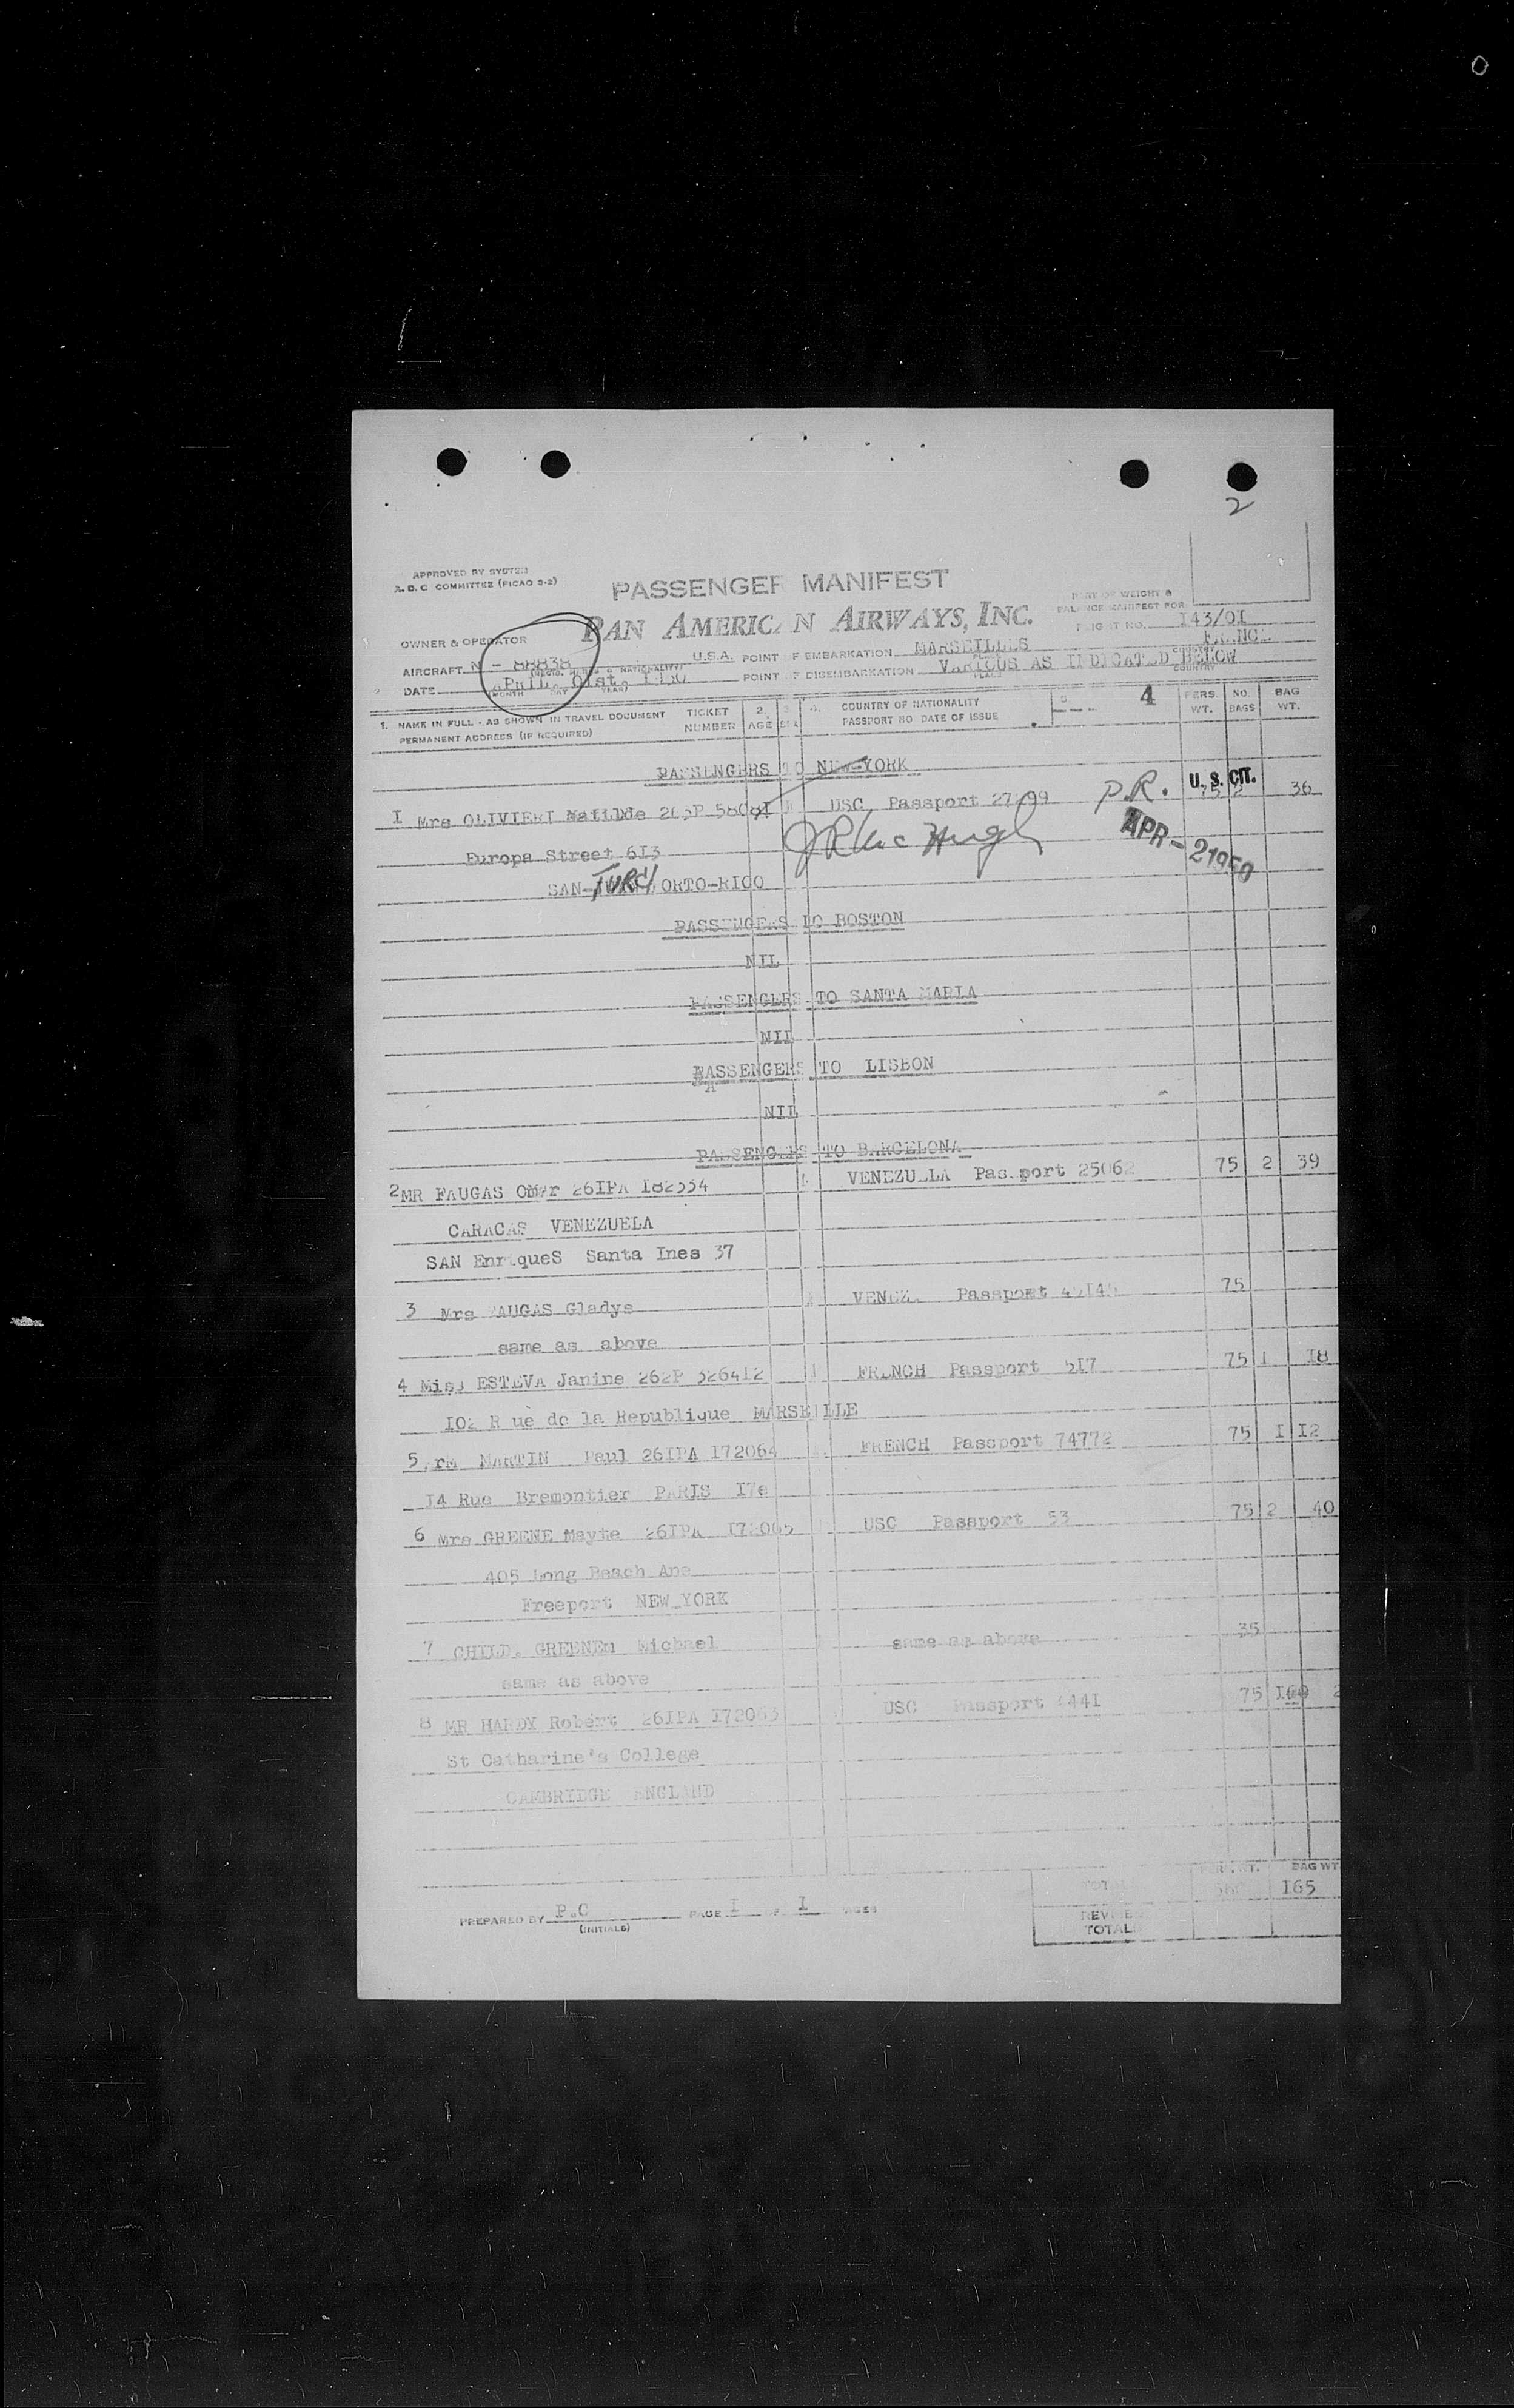 2
APPROVED BY SYSTEM
A. D. C COMMITTEE (PICAO 9-2)
PASSENGER MANIFEST
PAN AMERICAN AIRWAYS, INC.
PART OF WEIGHT &
BALANCE MANIFEST FOR
FLIGHT NO. I43/OI
OWNER & OPERATOR
AIRCRAFT N - 88838 U.S.A. POINT OF EMBARKATION MARSEILLES FRANCE
DATE APRIL OIst. POINT OF DISEMBARKATION VARIOUS AS INDICATED BELOW
(MONTH DAY YEAR) PLACE COUNTRY
1. NAME IN FULL - AS SHOWN IN TRAVEL DOCUMENT TICKET 2. 3. 4. COUNTRY OF NATIONALITY 5. 4 PERS. NO. BAG
PERMANENT ADDRESS (IF REQUIRED) NUMBER AGE SEX PASSPORT NO DATE OF ISSUE WT. BAGS WT.
PASSENGERS TO NEW-YORK
I Mrs OLIVIERI Matilde USC Passport P.R. U.S. CIT. 75 2 36
Europa Street 6I3
APR - 2 1950
SAN ORTO-RICO
PASSENGERS TO BOSTON
NIL
PASSENGERS TO SANTA MARIA
NIL
PASSENGERS TO LISBON
NIL
PASSENGERS TO BARCELONA
2 MR FAUGAS Omar 26IPA I82334 VENEZUELA Passport 25062 75 2 39
CARACAS VENEZUELA
SAN EnriqueS Santa Ines 37
3 Mrs FAUGAS Gladys VENEZ. Passport 75
same as above
4 Miss ESTEVA Janine 262P 3264I2 FRENCH Passport 5I7 75 I I8
IO2 R ue de la Republique MARSEILLE
5 MARTIN Paul 26IPA I72064 FRENCH Passport 74772 75 I I2
I4 Rue Bremontier PARIS I7e
6 Mrs GREENE Mayte 26IPA I72065 USC Passport 53 75 2 40
405 Long Beach Ane
Freeport NEW YORK
7 CHILD. GREENEm Michael same as above 35
same as above
8 MR HARDY Robert 26IPA I72063 USC Passport 75
St Catharine's College
CAMBRYDGE ENGLAND
PERS. WT. BAG WT
TOTAL I65
PREPARED BY P.C PAGE I OF I PAGES
(INITIALS)
REVISED
TOTAL